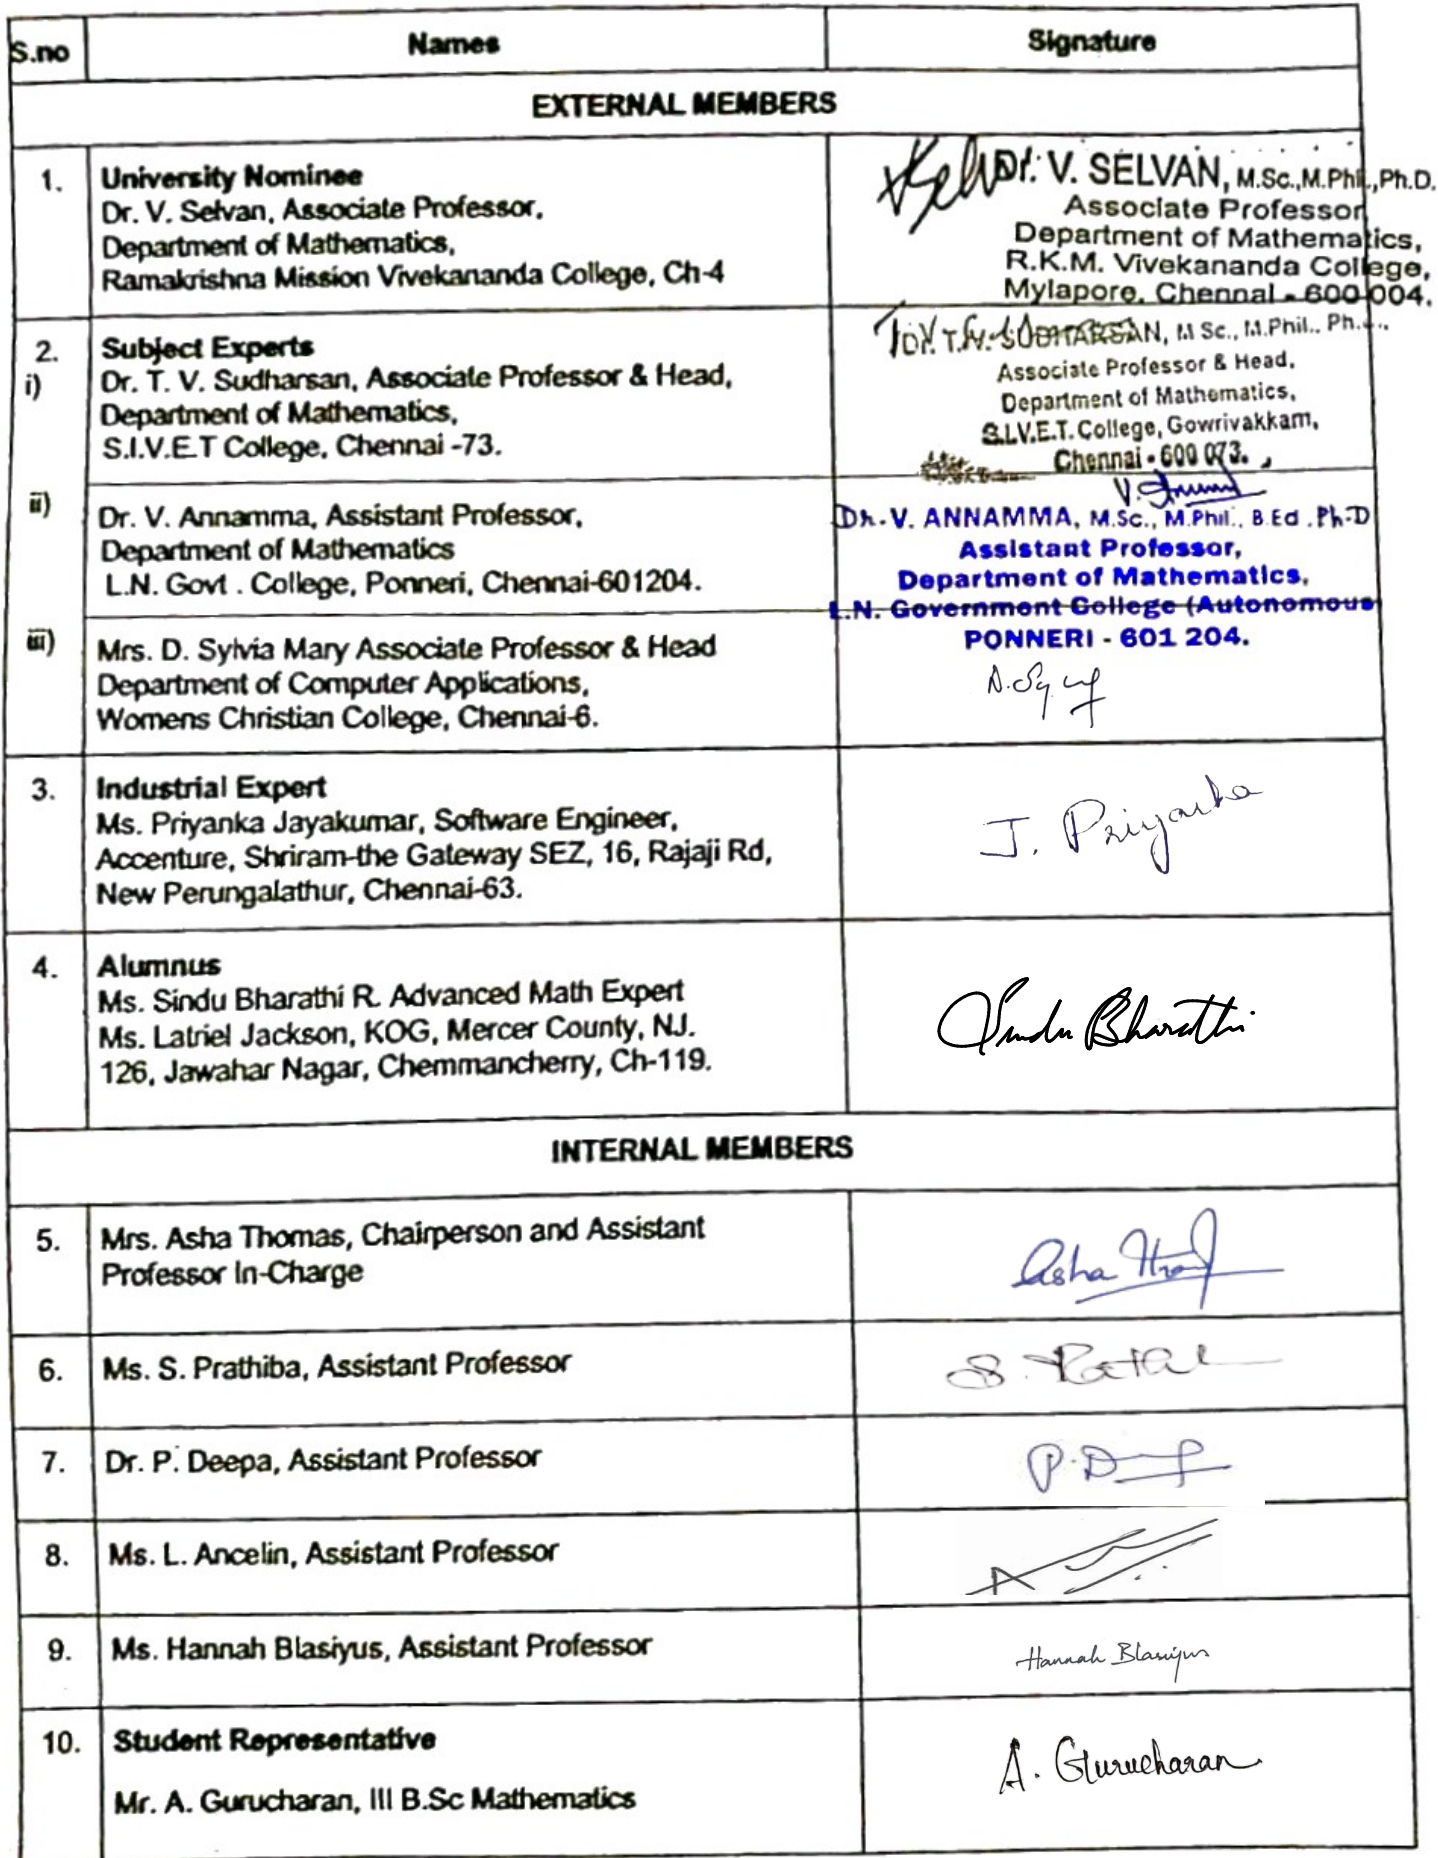 S.no Names Signature
EXTERNAL MEMBERS
1. University Nominee
Dr. V. Selvan, Associate Professor,
Department of Mathematics,
Ramakrishna Mission Vivekananda College, Ch-4
Dr. V. SELVAN, M.Sc.,M.Phil.,Ph.D.
Associate Professor
Department of Mathematics,
R.K.M. Vivekananda College,
Mylapore, Chennai - 600 004.
2. Subject Experts
i) Dr. T. V. Sudharsan, Associate Professor & Head,
Department of Mathematics,
S.I.V.E.T College, Chennai -73.
Dr. T.V. SUDHARSAN, M Sc., M.Phil.. Ph.
Associate Professor & Head,
Department of Mathematics,
S.I.V.E.T. College, Gowrivakkam,
Chennai - 600 073.
ii) Dr. V. Annamma, Assistant Professor,
Department of Mathematics
L.N. Govt . College, Ponneri, Chennai-601204.
V.
Dr. V. ANNAMMA, M.Sc., M.Phil., B.Ed. Ph-D
Assistant Professor,
Department of Mathematics,
L.N. Government College (Autonomous
PONNERI - 601 204.
iii) Mrs. D. Sylvia Mary Associate Professor & Head
Department of Computer Applications,
Womens Christian College, Chennai-6.
3. Industrial Expert
Ms. Priyanka Jayakumar, Software Engineer,
Accenture, Shriram-the Gateway SEZ, 16, Rajaji Rd,
New Perungalathur, Chennai-63.
J. Priyanka
4. Alumnus
Ms. Sindu Bharathi R. Advanced Math Expert
Ms. Latriel Jackson, KOG, Mercer County, NJ.
126, Jawahar Nagar, Chemmancherry, Ch-119.
Sindu Bharathi
INTERNAL MEMBERS
5. Mrs. Asha Thomas, Chairperson and Assistant
Professor In-Charge
Asha
6. Ms. S. Prathiba, Assistant Professor
S.
7. Dr. P. Deepa, Assistant Professor
P. D
8. Ms. L. Ancelin, Assistant Professor
9. Ms. Hannah Blasiyus, Assistant Professor
Hannah Blasiyus
10. Student Representative
Mr. A. Gurucharan, III B.Sc Mathematics
A. Gurucharan